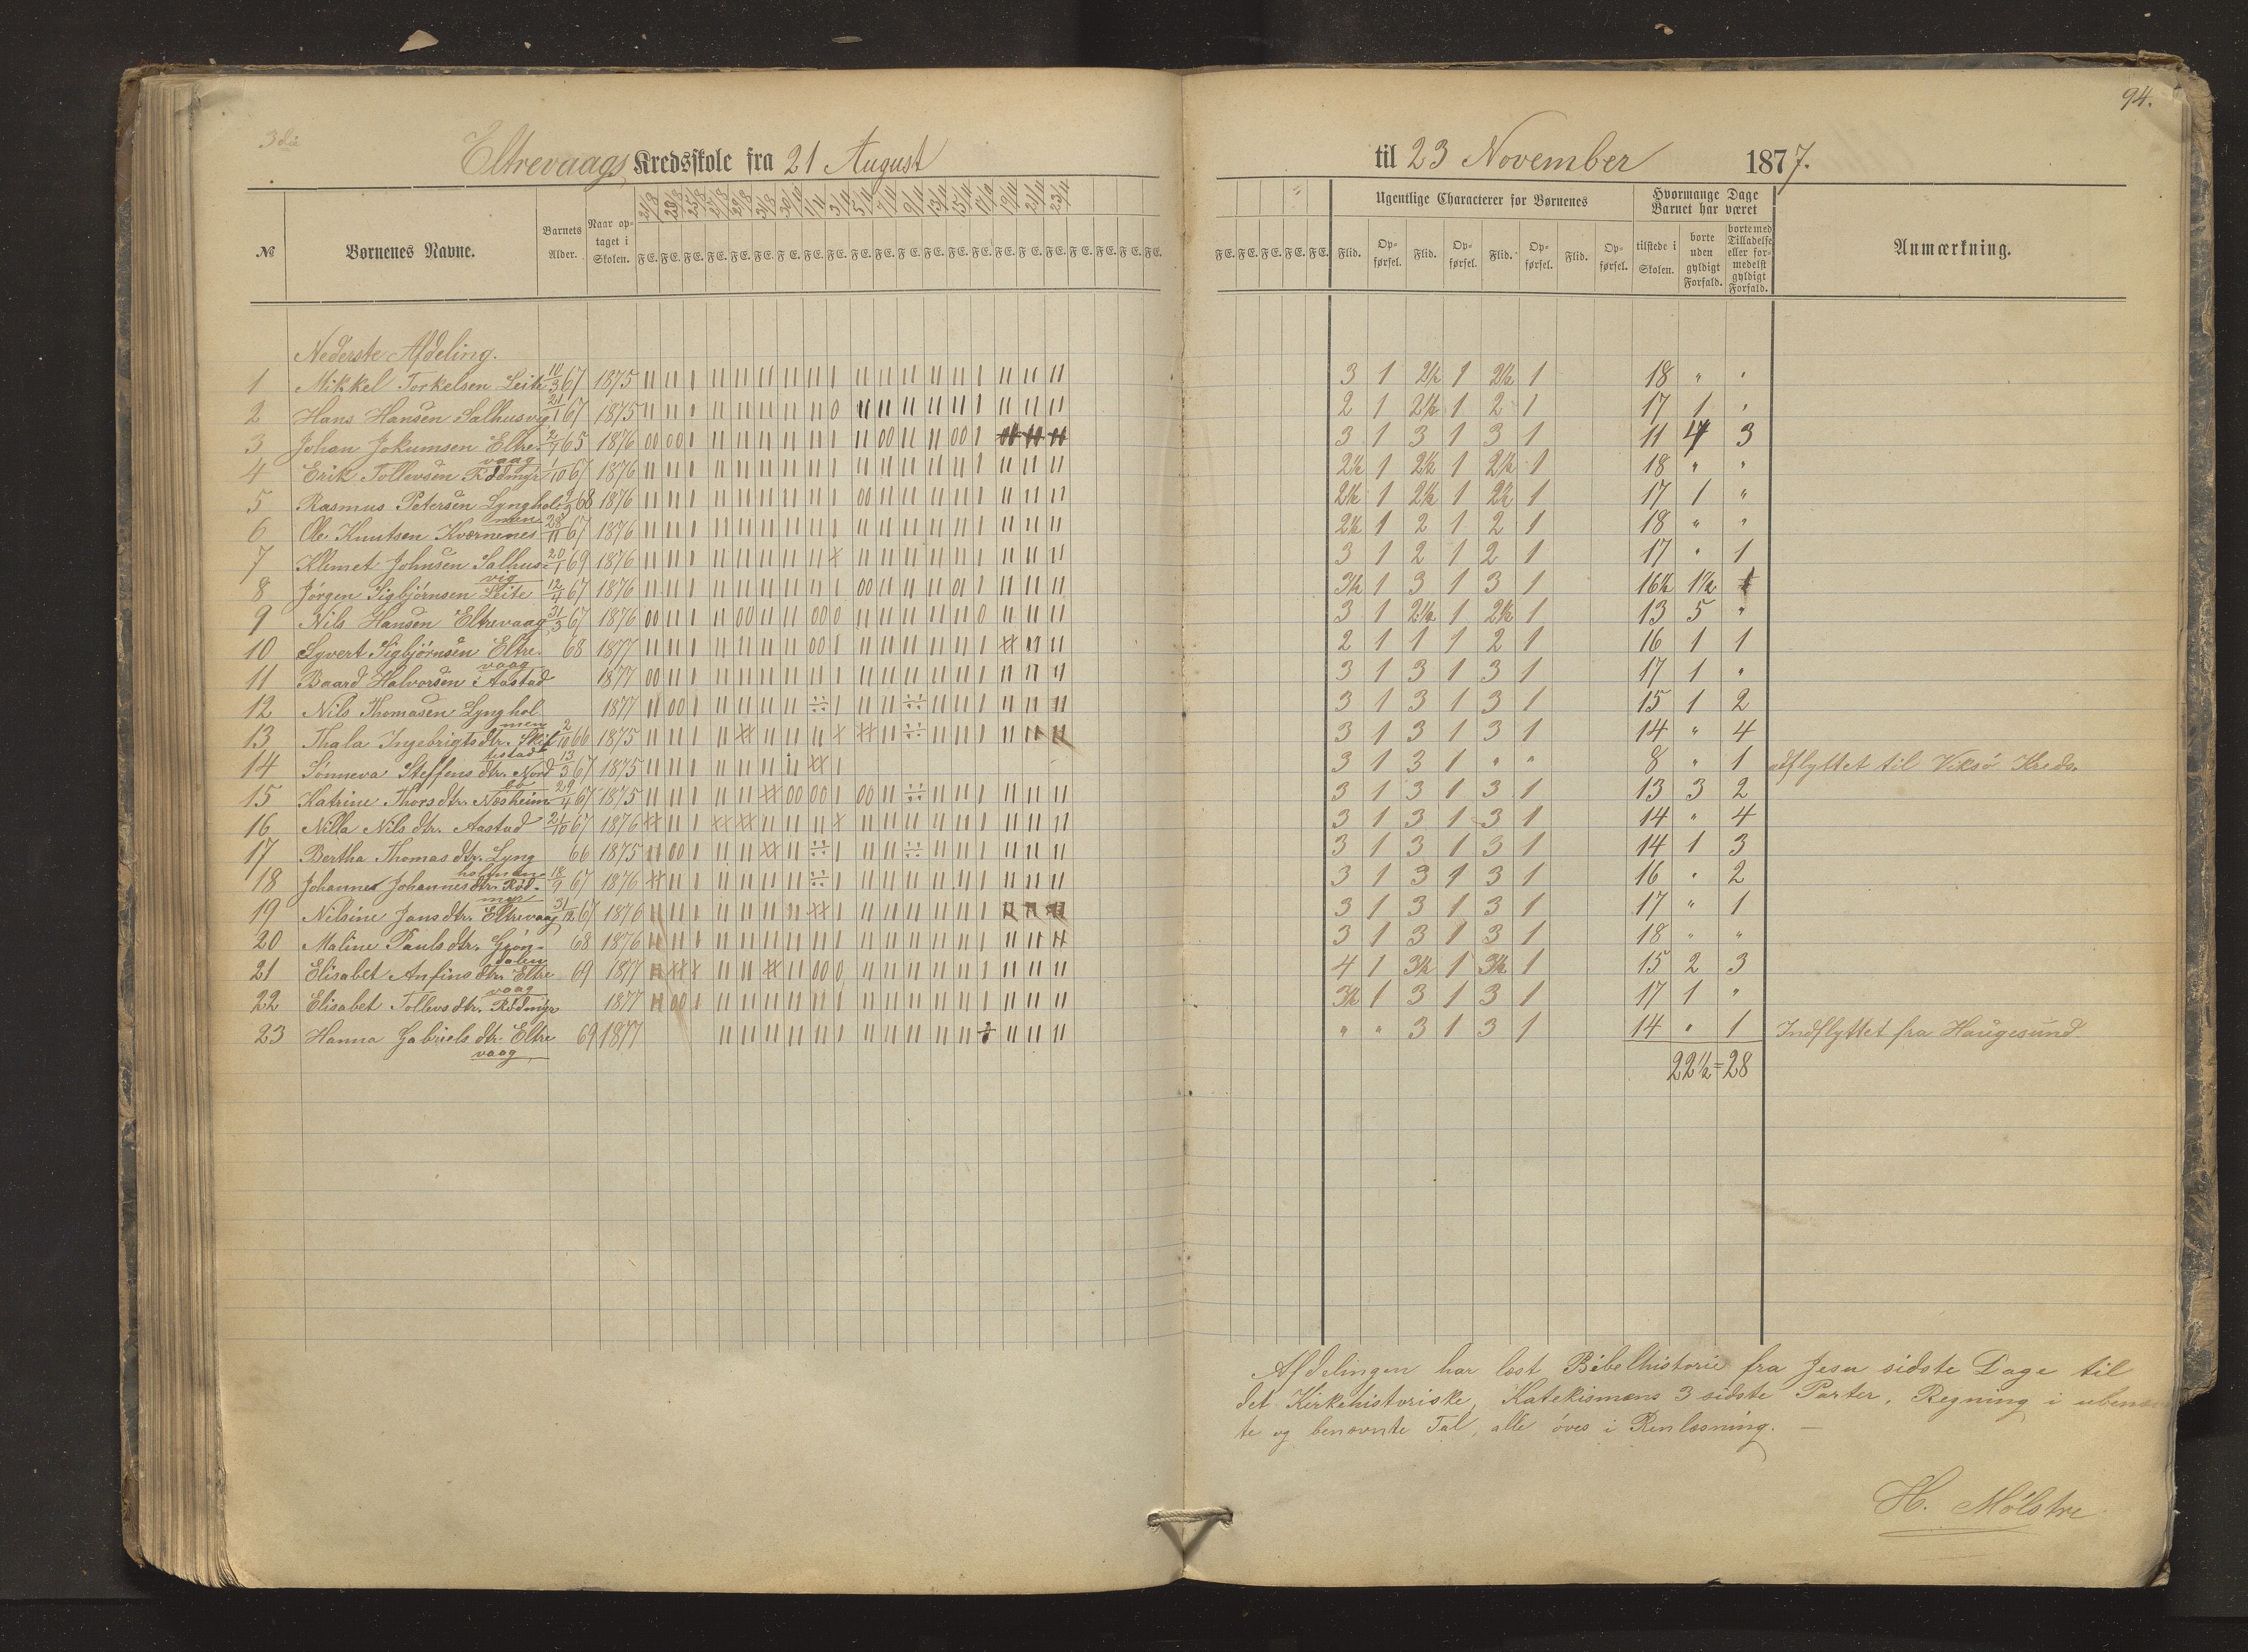 94.
3die
Eltrevaags Kredsskole fra 21 August til 23 November 1877.
№ Børnenes Navne. Barnets Alder. Naar optaget i Skolen. Ugentlige Characterer for Børnenes Hvormange Dage Barnet har været Anmærkning.
Flid. Opførsel. Flid. Opførsel. Flid. Opførsel. Flid. Opførsel. tilstede i Skolen. borte uden gyldigt Forfald. borte med Tilladelse eller formedelst gyldigt Forfald.
Nederste Afdeling.
1 Mikkel Torkelsen Leite 10/3 67 1875 3 1 2½ 1 2½ 1 18 " "
2 Hans Hansen Salhusvig 21/1 67 1875 2 1 2½ 1 2 1 17 1 "
3 Johan Jokumsen Eltrevaag 2/7 65 1876 3 1 3 1 3 1 11 4 3
4 Erik Tollevsen Rødmyr 1/10 67 1876 2½ 1 2½ 1 2½ 1 18 " "
5 Rasmus Petersen Lyngholmen 68 1876 2½ 1 2½ 1 2½ 1 17 1 "
6 Ole Knutsen Kvernenes 28/11 67 1876 2½ 1 2 1 2 1 18 " "
7 Klemet Johnsen Salhusvig 20/1 69 1876 3 1 2 1 2 1 17 " 1
8 Jørgen Sigbjørnsen Leite 12/4 67 1876 3½ 1 3 1 3 1 16½ 1½
9 Nils Hansen Eltrevaag 31/3 67 1876 3 1 2½ 1 2½ 1 13 5 "
10 Syvert Sigbjørnsen Eltrevaag 68 1877 2 1 1 1 2 1 16 1 1
11 Baard Halvorsen Aastad 1877 3 1 3 1 3 1 17 1 "
12 Nils Thomasen Lyngholmen 1877 3 1 3 1 3 1 15 1 2
13 Thala Ingebrigtsdtr. Skistad 2/10 66 1875 3 1 3 1 3 1 14 " 4
14 Sønneva Steffensdtr. Nordbø 13/3 67 1875 3 1 3 1 " " 8 " 1 udflyttet til Viksø Kreds.
15 Katrine Thorsdtr. Næsheim 29/4 67 1875 3 1 3 1 3 1 13 3 2
16 Nilla Nilsdtr. Aastad 21/10 67 1876 3 1 3 1 3 1 14 " 4
17 Bertha Thomasdtr. Lyngholmen 66 1875 3 1 3 1 3 1 14 1 3
18 Johanne Johannesdtr. Rødmyr 18/9 67 1876 3 1 3 1 3 1 16 " 2
19 Nilsine Jansdtr. Eltrevaag 31/12 67 1876 3 1 3 1 3 1 17 " 1
20 Maline Paulsdtr. Grøndalen 68 1876 3 1 3 1 3 1 18 " "
21 Elisabet Anfinsdtr. Eltrevaag 69 1877 4 1 3½ 1 3½ 1 15 2 3
22 Elisabet Tollevsdtr. Rødmyr 1877 3½ 1 3 1 3 1 17 1 "
23 Hanna Gabrielsdtr. Eltrevaag 69 1877 " " 3 1 3 1 14 " 1 Indflyttet fra Haugesund.
22½ = 28
Afdelingen har læst Bibelhistorie fra Jesu sidste Dage til
det Kirkehistoriske, Katekismens 3 sidste Parter, Regning i ubenævn
te og benævnte Tal, alle øves i Renlæsning. —
H. Mølstre